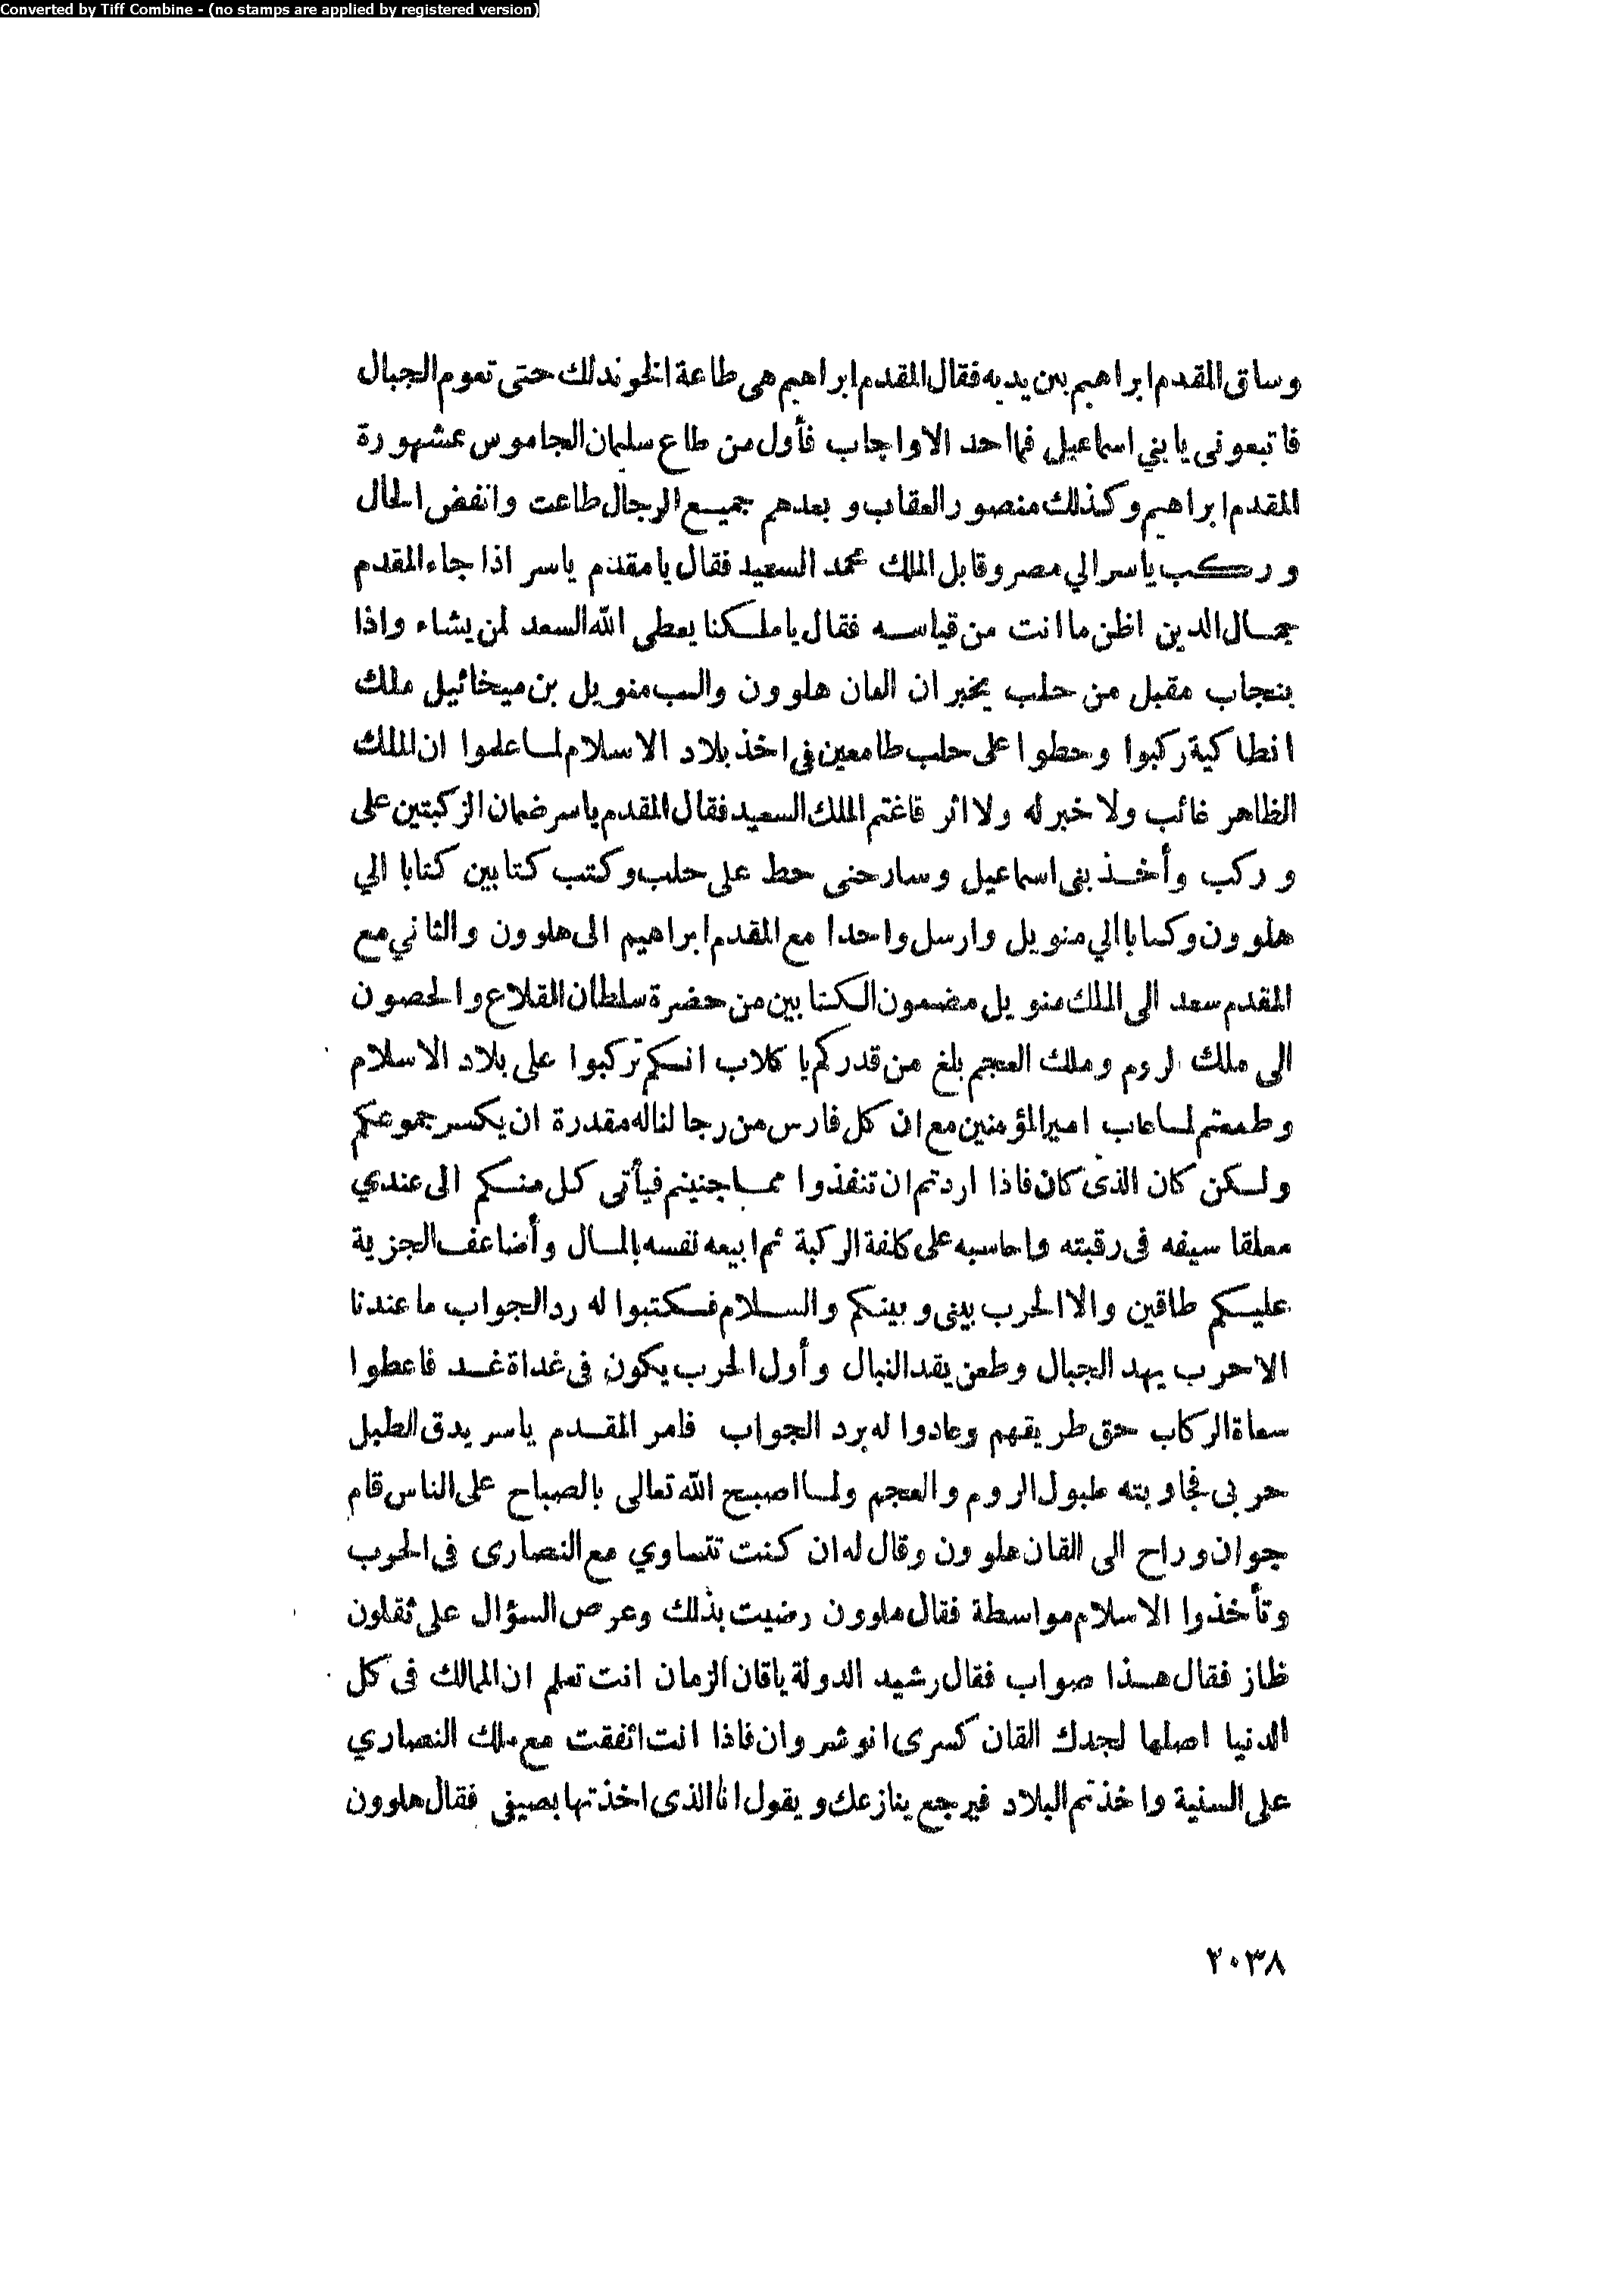 Converted by Tiff Combine - (no stamps are applied by registered version)
وساق المقدم ابراهيم بين يديه فقال المقدم ابراهيم هى طاعة الخوندلك حتى تعوم الجبال
فاتبعونى يا بني اسماعيل فما احد الا واجاب فأول من طاع سليمان الجاموس بمشهورة
المقدم ابراهيم وكذلك منصور العقاب و بعدهم جميع الرجال طاعت وانفض الحال
وركب ياسر الي مصر وقابل الملك محمد السعيد فقال يا مقدم ياسر اذا جاء المقدم
جمال الدين اظن ما انت من قياسه فقال يا ملكنا يعطى الله السعد لمن يشاء واذا
بنجاب مقبل من حلب يخبر ان القان هلوون والب منويل بن ميخائيل ملك
انطاكية ركبوا وحطوا على حلب طامعين فى اخذ بلاد الاسلام لما علموا ان الملك
الظاهر غائب ولا خبر له ولا اثر فاغتم الملك السعيد فقال المقدم ياسر ضمان الركبتين على
وركب وأخذ بنى اسماعيل وسار حتى حط على حلب وكتب كتابين كتابا الي
هلوون وكتابا الي منويل وارسل واحدا مع المقدم ابراهيم الى هلوون والثاني مع
المقدم سعد الى الملك منويل مضمون الكتابين من حضرة سلطان القلاع والحصون
الى ملك الروم وملك العجم بلغ من قدركم يا كلاب انكم تركبوا على بلاد الاسلام
وطمعتم لما غاب امير المؤمنين مع ان كل فارس من رجالنا له مقدرة ان يكسر جموعكم
ولكن كان الذى كان فاذا اردتم ان تنفذوا مما جنيتم فيأتى كل منكم الى عندي
معلقا سيفه فى رقبته واحاسبه على كلفة الركبة ثم ابيعه نفسه بالمال وأضاعف الجزية
عليكم طاقين والا الحرب بينى وبينكم والسلام فكتبوا له رد الجواب ما عندنا
الا حرب يهد الجبال وطعن يقد النبال وأول الحرب يكون فى غداة غد فاعطوا
سعاة الركاب حق طريقهم وعادوا له برد الجواب فامر المقدم ياسر يدق الطبل
حربى فجاوبته طبول الروم والعجم ولما اصبح الله تعالى بالصباح على الناس قام
جوان وراح الى القان هلوون وقال له ان كنت تتساوي مع النصارى فى الحرب
وتأخذوا الاسلام مواسطة فقال هلوون رضيت بذلك وعرض السؤال على ثقلون
ظاز فقال هذا صواب فقال رشيد الدولة ياقان الزمان انت تعلم ان الممالك فى كل
الدنيا اصلها لجدك القان كسرى انوشروان فاذا انت اتفقت مع ملك النصاري
على السنية واخذتم البلاد فيرجع ينازعك ويقول انا الذى اخذتها بصيفى فقال هلوون
٢٠٣٨